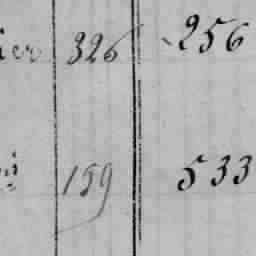 326 256
159 533